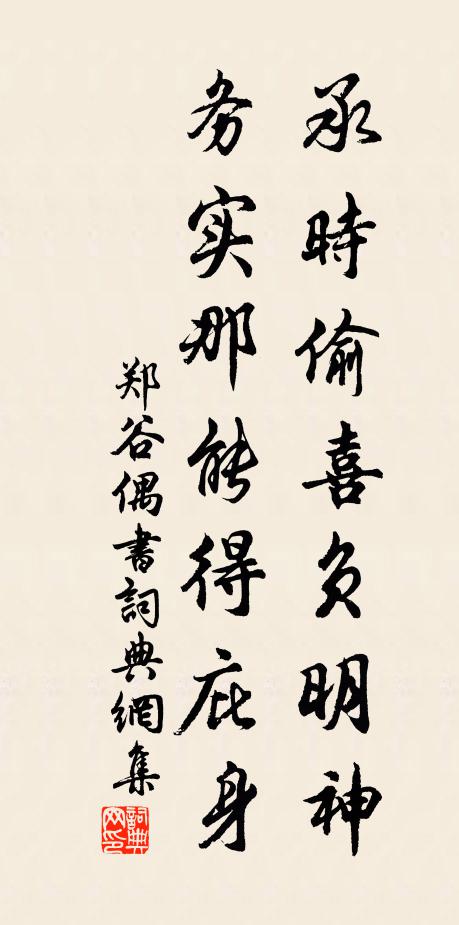 承時偷喜負明神
务实那能得庇身
郑谷偶書詞典網集
詞典網印